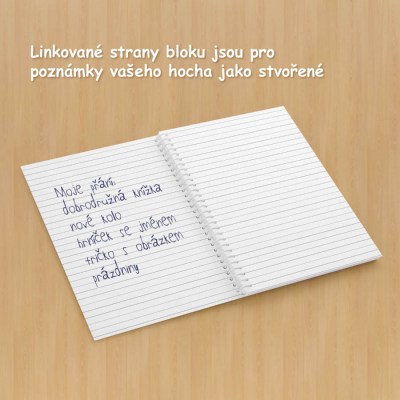 Linkované strany bloku jsou pro
poznámky vašeho hocha jako stvořené
Moje přání:
dobrodružná knížka
nové kolo
hrníček se jménem
tričko s obrázkem
prázdniny